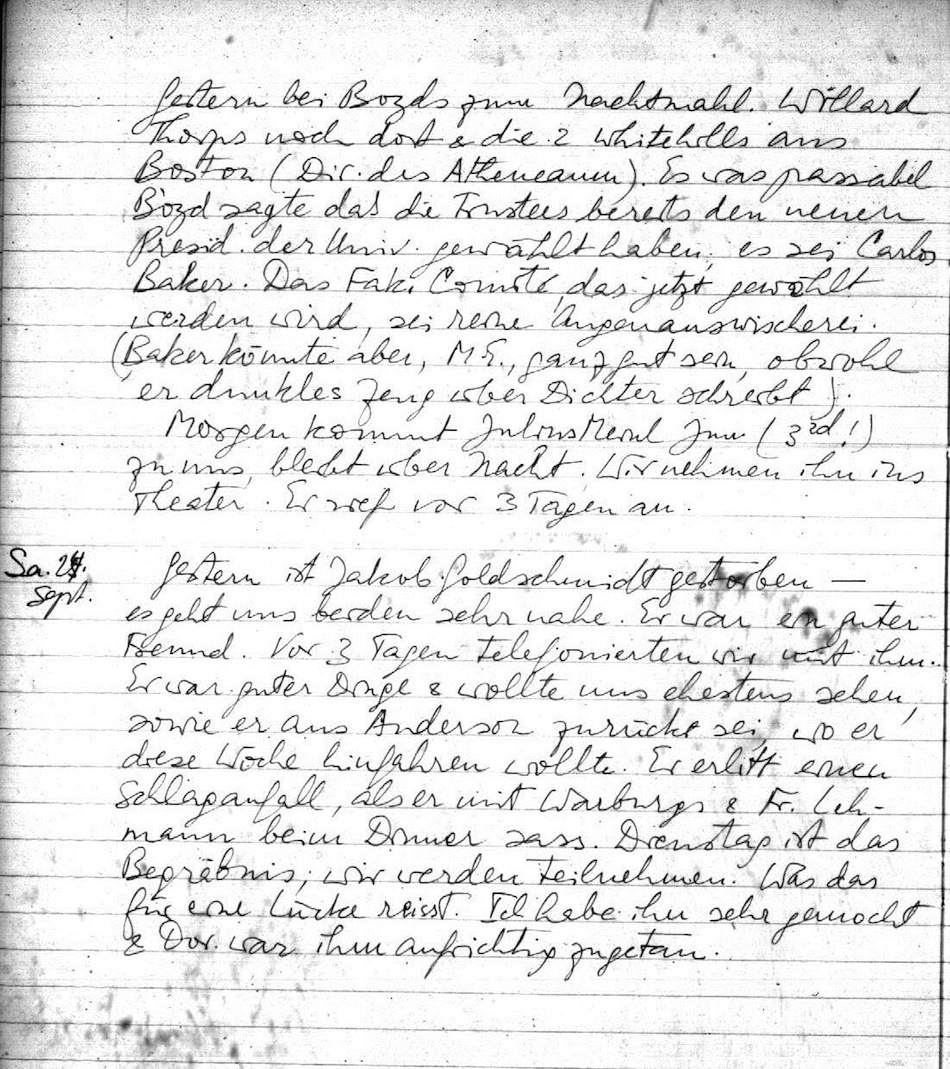 Gestern bei Boyds zum Nachtmahl. Willard
Thorps noch dort & die 2 Whitehills aus
Boston (Dir. des Atheneaum). Es was passabel
Boyd sagte daß die Trustees bereits den neuen
Presid. der Univ. gewählt haben, es sei Carlos
Baker. Das Fak. Comité, das jetzt gewählt
werden wird, sei reine Augenauswischerei.
(Baker könnte aber, M.E., ganz gut sein, obwohl
er dunkles Zeug über Dichter schreibt).
Morgen kommt Julius Meinl Jun (3rd!)
zu uns, bleibt über Nacht. Wir nehmen ihn ins
Theater. Er rief vor 3 Tagen an.
Sa. 24.
Sept.
Gestern ist Jakob Goldschmidt gestorben —
es geht uns beiden sehr nahe. Er war ein guter
Freund. Vor 3 Tagen telefonierten wir mit ihm.
Er war guter Dinge & wollte uns ehestens sehen,
sowie er aus Anderson zurück sei, wo er
diese Woche hinfahren wollte. Er erlitt einen
Schlaganfall, als er mit Warburgs & Fr. Leh-
mann beim Dinner sass. Dienstag ist das
Begräbnis; wir werden teilnehmen. Was das
für eine Lücke reisst. Ich habe ihn sehr gemocht
& Dor. war ihm aufrichtig zugetan.